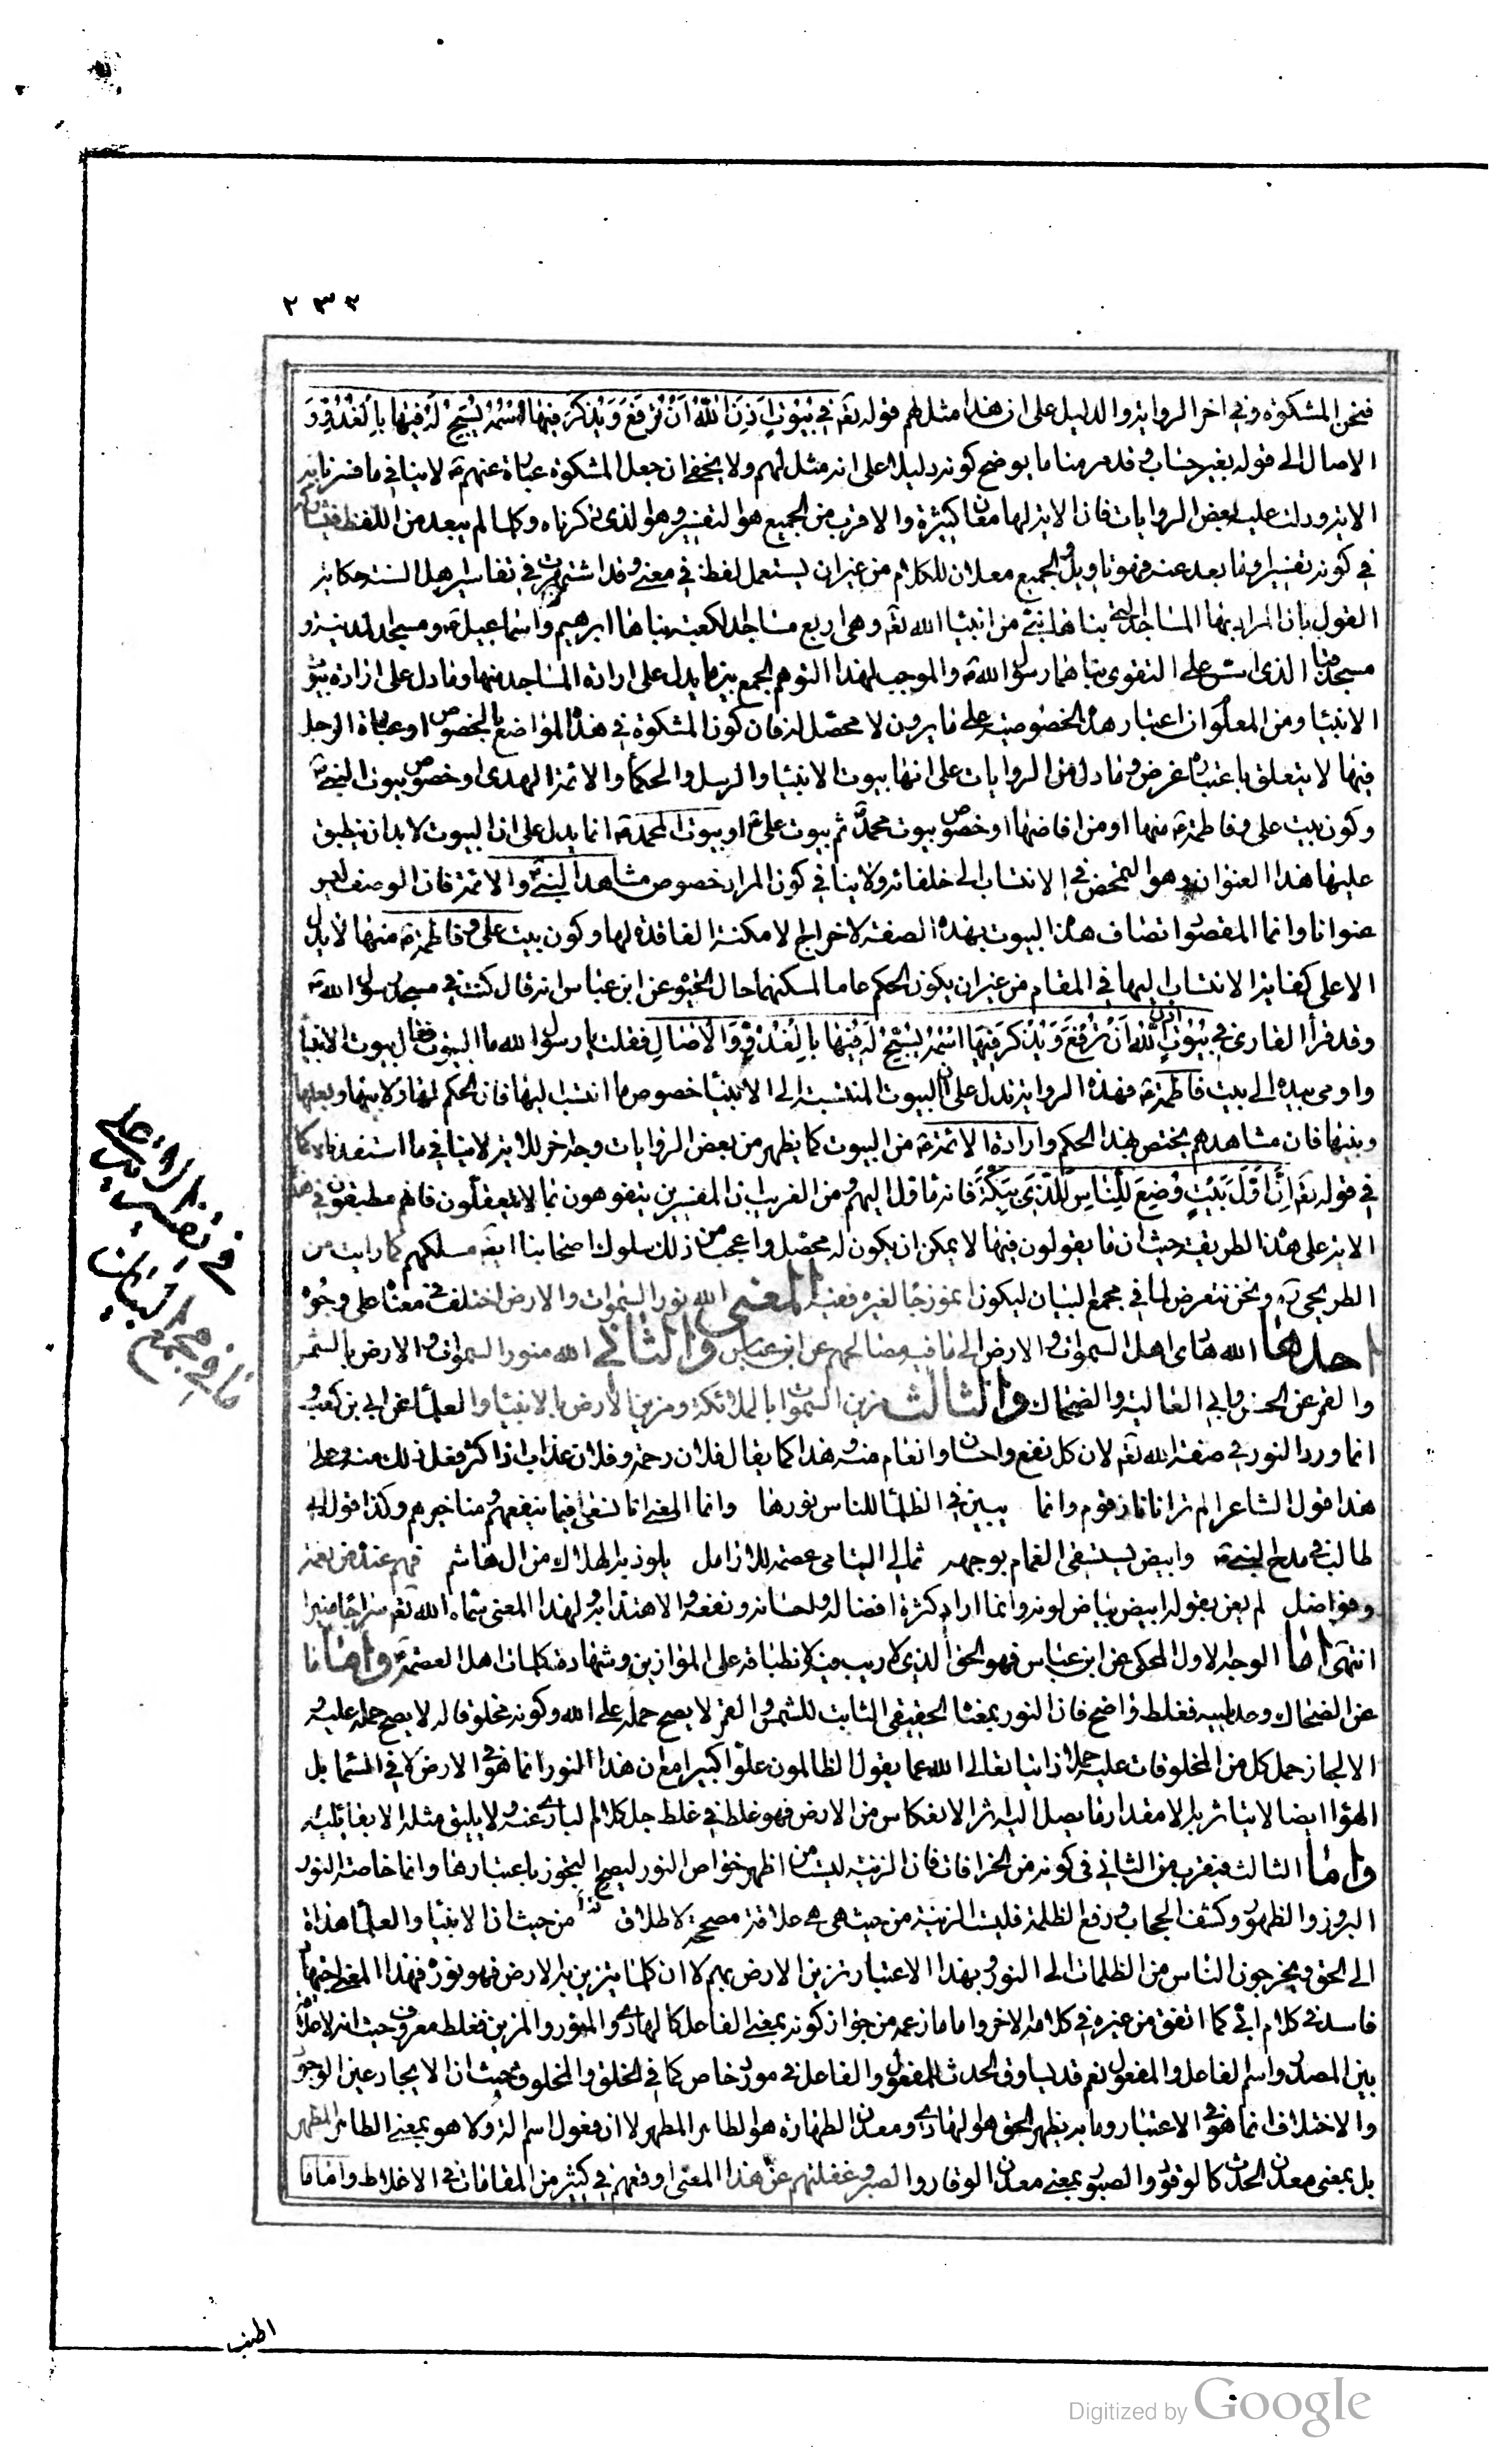 ٢٣٢
فنحن المشكوة وفي اخر الرواية والدليل على ان هذا مثل لهم قوله تعم في بُيُوتٍ اَذِنَ اللّٰهُ اَنْ تُرْفَعَ وَيُذْكَرَ فِيهَا اسْمُهُ يُسَبِّحُ لَهُ فِيهَا بِالْغُدُوِّ وَ
الاصال الى قوله بغير حساب وقد مر منا ما يوضح كونه دليلا على انه مثل لهم ولا يخفى ان جعل المشكوة عبارة عنهم ع لا ينافي ما فسرنا به
الاية ودلت عليه بعض الروايات فان الاية لها معان كثيرة والاقرب من الجميع هو التفسير وهو الذي ذكرناه وكلما لم يبعد من اللفظ
في كونه تفسيرا وما بعد عنه فهو تاويل والجميع معدن للكلام من غير ان يستعمل لفظ في معنى وقد اشتهرت في تفاسير اهل السنة حكاية
القول بان المراد بها المساجد التي بناها نبي من انبياء الله تعم وهي اربع مساجد الكعبة بناها ابرهيم واسماعيل ع ومسجد المدينة و
مسجد قبا الذي اسس على التقوى بناهما رسول الله ص والموجب لهذا التوهم الجمع بين ما يدل على ارادة المساجد منها وما دل على ارادة بيوت
الانبياء ومن المعلوم ان اعتبار هذه الخصوصية على ما يرون لا محصل له فان كون المشكوة في هذه المواضع بالخصوص او عبادة الرجل
فيها لا يتعلق باعتباره غرض وما دل من الروايات على انها بيوت الانبياء والرسل والحكماء والائمة الهدى او خصوص بيوت النبي ص
وكون بيت علي وفاطمة ع منها او من افاضلها او خصوص بيوت محمد ص ثم بيوت علي ع او بيوت ال محمد ص انما يدل على ان البيوت لا بد ان ينطبق
عليها هذا العنوان وهو التمحض في الانتساب الى خلفائه ولا ينافي كون المراد خصوص مشاهد النبي ص والائمة فان الوصف ليس
عنوانا وانما المقصود اتصاف هذه البيوت بهذه الصفة لاخراج الامكنة الفاقدة لها وكون بيت علي وفاطمة ع منها لا يدل
الا على كفاية الانتساب اليها في المقام من غير ان يكون الحكم عاما لمسكنهما حال الحيوة عن ابن عباس انه قال كنت في مسجد رسول الله ص
وقد قرأ القارئ في بُيُوتٍ اَذِنَ اللّٰهُ اَنْ تُرْفَعَ وَيُذْكَرَ فِيهَا اسْمُهُ يُسَبِّحُ لَهُ فِيهَا بِالْغُدُوِّ وَالْاٰصَالِ فقلت يا رسول الله ما البيوت فقال بيوت الانبياء
واومى بيده الى بيت فاطمة ع فهذه الرواية تدل على ان البيوت المنتسبة الى الانبياء خصوص ما انتسب اليها فان الحكم لها ولابيها وبعلها
وبنيها فان مشاهدهم يختص بهذا الحكم وارادة الائمة ع من البيوت كما يظهر من بعض الروايات وجه اخر للاية لا ينافي ما استفدناه كما
في قوله تعم اِنَّ اَوَّلَ بَيْتٍ وُضِعَ لِلنَّاسِ لَلَّذِي بِبَكَّةَ فانه ماول اليهم ومن الغريب ان المفسرين يتفوهون بما لا يتعقلون فانهم مطبقون في هذه
الاية على هذه الطريقة حيث ان ما يقولون فيها لا يمكن ان يكون له محصل واعجب من ذلك سلوك اصحابنا ايضا مسلكهم كما رايت من
الطريحي ره ونحن نتعرض لما في مجمع البيان ليكون انموذجا لغيره ففيه المعنى الله نور السموات والارض اختلف في معناه على وجوه
احدها الله هادي اهل السموات والارض الى ما فيه مصالحهم عن ابن عباس والثاني الله منور السموات والارض بالشمس
والقمر عن الحسن وابي العالية والضحاك والثالث مزين السموات بالملائكة ومزين الارض بالانبياء والعلماء عن ابي بن كعب و
انما ورد النور في صفة الله تعم لان كل نفع واحسان وانعام منه وهذا كما يقال فلان رحمة وفلان عذاب اذا كثر فعل ذلك منه وعلى
هذا قول الشاعر الم تر انا نور قوم وانما   يبين في الظلماء للناس نورها   وانما المعنى انا نسعى فيما ينفعهم ومنا خيرهم وكذا قول ابي
طالب في مدح النبي ص   وابيض يستسقى الغمام بوجهه   ثمال اليتامى عصمة للارامل   يلوذ به الهلاك من ال هاشم   فهم عنده في نعمة
وفواضل   لم يعن بقوله ابيض بياض لونه وانما اراد كثرة افضاله واحسانه ونفعه والاهتداء به ولهذا المعنى سماه الله تعم سراجا منيرا
انتهى اما الوجه الاول المحكي عن ابن عباس فهو الحق الذي لا ريب فيه لانطباقه على الموازين وشهادة كلمات اهل العصمة ع واما ما
عن الضحاك وصاحبيه فغلط واضح فان النور بمعناه الحقيقي الثابت للشمس والقمر لا يصح حمله على الله وكونه مخلوقا له لا يصح حمله عليه
الا لجاز حمل كل من المخلوقات عليه حملا ذاتيا تعالى الله عما يقول الظالمون علوا كبيرا مع ان هذا النور انما هو في الارض لا في السماء بل
الهواء ايضا لا يتاثر به الا مقدار ما يصل اليه اثر الانعكاس من الارض فهو غلط في غلط جل كلام الباري عنه ولا يليق مثله الا بقائله
واما الثالث فيقرب من الثاني في كونه من الخرافات فان الزينة ليست من اظهر خواص النور ليصح التجوز باعتبارها وانما خاصة النور
البروز والظهور وكشف الحجاب ورفع الظلمة فليست الزينة من حيث هي هي علاقة مصححة لاطلاق من حيث ان الانبياء والعلماء هداة
الى الحق ويخرجون الناس من الظلمات الى النور وبهذا الاعتبار تزين الارض بهم لا ان كلما يتزين به الارض فهو نوره فهذا المعنى اجنبي
فاسد في كلام ابي كما اتفق من غيره في كلامه الاخر واما ما زعمه من جواز كونه بمعنى الفاعل كالهادي والمنور والمزين فغلط معروف حيث انه لا علاقة
بين المصدر واسم الفاعل والمفعول نعم قد يساوق الحدث المفعول والفاعل في مورد خاص كما في الخلق والمخلوق حيث ان الايجاد عين الوجود
والاختلاف انما هو في الاعتبار وما به يظهر الحق هو الهادي ومعدن الطهارة هو الطاهر المطهر لا ان فعول اسم الة ولا هو بمعنى الطاهر المطهر
بل بمعنى معدن الحدث كالوقور والصبور بمعنى معدن الوقار والصبر وغفلتهم عن هذا المعنى اوقعهم في كثير من المقامات في الاغلاط واما ما
في تضييف الايراد على
ما في مجمع البيان
اطنب
Digitized by Google